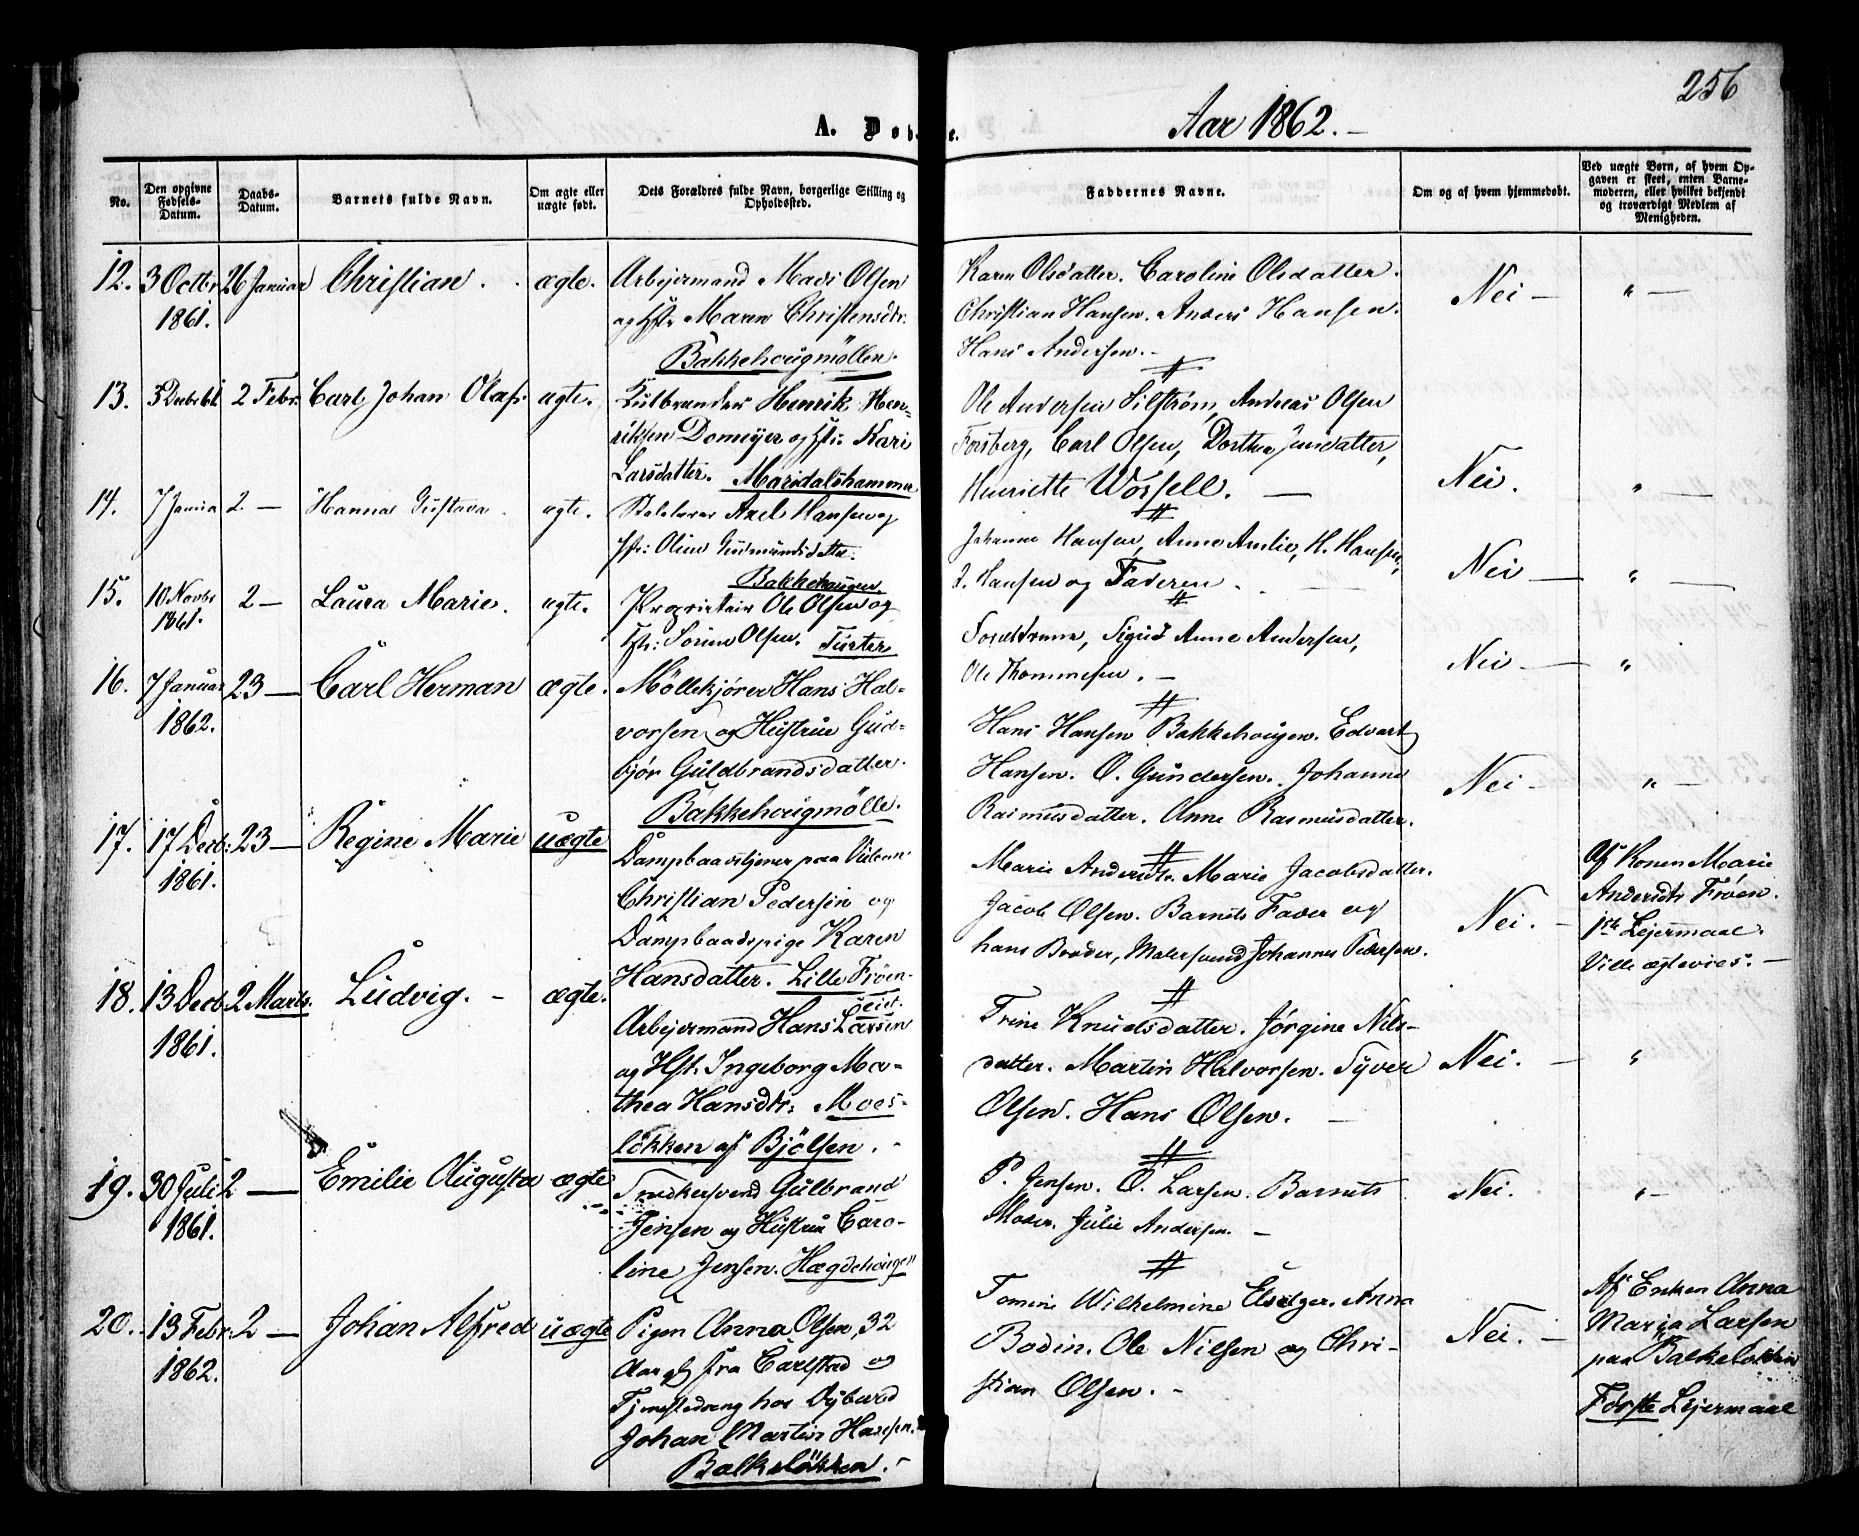 256
A. Døbte.
Aar 1862.
No.
Den opgivne Fødsels-Datum.
Daabs-Datum.
Barnets fulde Navn.
Om ægte eller uægte født.
Dets Forældres fulde Navn, borgerlige Stilling og Opholdssted.
Faddernes Navne.
Om og af hvem hjemmedøbt.
Ved uægte Børn, af hvem Opgaven er skeet, enten Barnemoderen, eller hvilket bekjendt og troværdigt Medlem af Menigheden.
12. 3 Octbr 1861. 26 Januar Christian. ægte.
Arbejermand Mads Olsen
og Hst. Maren Christensdtr.
Bakkehougmøllen.
Karen Olsdatter. Caroline Olsdatter.
Christian Hansen. Anders Hansen.
Hans Andersen.
Nei — " —
13. 2 Febr. Carl Johan Olaf. ægte.
Henrik Hen-
riksen Domeijer og Hst: Kari
Larsdatter. Marisdalshammer
Ole Andersen Silstrøm, Andreas Olsen
Forsberg, Carl Olsen, Dorthea Jensdatter,
Henriette Wossell.
Nei. " —
14. 7 Janua 2 — Hanna Gustava. ægte.
Axel Hansen og
Hst: Oline Gudmundsdatter.
Bakkehaugen
Johanne Hansen, Anne Amlie, H. Hansen,
J. Hansen og Faderen.
Nei — " —
15. 10 Novbr 1861. 2 — Laura Marie. ægte.
Proprietair Ole Olsen og
Hst: Sorine Olsen. Turter
Sigurd Anne Andersen,
Ole Thommesen.
Nei — "
16. 7 Januar 1862. 23 — Carl Herman ægte.
Møllekjører Hans Hal-
vorsen og Hustrue Gud-
bjør Guldbrandsdatter.
Bakkehougmølle.
Hans Hansen Bakkehougen. Edvart
Hansen. O. Gundersen. Johanne
Rasmusdatter. Anne Rasmusdatter.
Nei — " —
17. 17 Decb: 1861. 23 — Regine Marie uægte
Christian Pedersen og
Dampbaadspige Karen
Hansdatter. Lille Frøen-
eiet.
Marie Andersdtr. Marie Jacobsdatter.
Jacob Olsen. Barnets Fader og
hans Broder, Malersvend Johannes Pedersen.
Nei. —
Af Konen Marie
Andersdtr Frøen.
1ste Lejermaal.
Ville ægtevies. —
18. 13 Decb 1861. 2 Marts. Ludvig. — ægte.
Arbejermand Hans Larsen
og Hst. Ingeborg Ma-
thea Hansdtr: Moes-
løkken af Bjølsen.
Trine Knudsdatter. Jørgine Nils-
datter. Martin Halvorsen. Syver
Olsen. Hans Olsen. —
Nei. — "
19. 30 Juli 1861. 2 — Emilie Augusta ægte
Snedkersvend Gulbrand
Jensen og Hustrue Caro-
line Jensen. Hægdehougen
P. Jensen. O. Larsen. Barnets
Moder. Julie Andersen. —
Nei. " —
20. 13 Febr. 1862. 2 — Johan Alfred uægte
Pigen Anna Olsen, 32
Aar gl. fra Carlstad og
Tjenestedreng hos
Johan Martin Hansen.
Balkeløkken.
Tomine Wilhelmine Anna
Bodin. Ole Nilsen og Chri-
stian Olsen. —
Nei. —
Af Enken Anna
Marja Larsen
paa Balkeløkken
Første Lejermaal